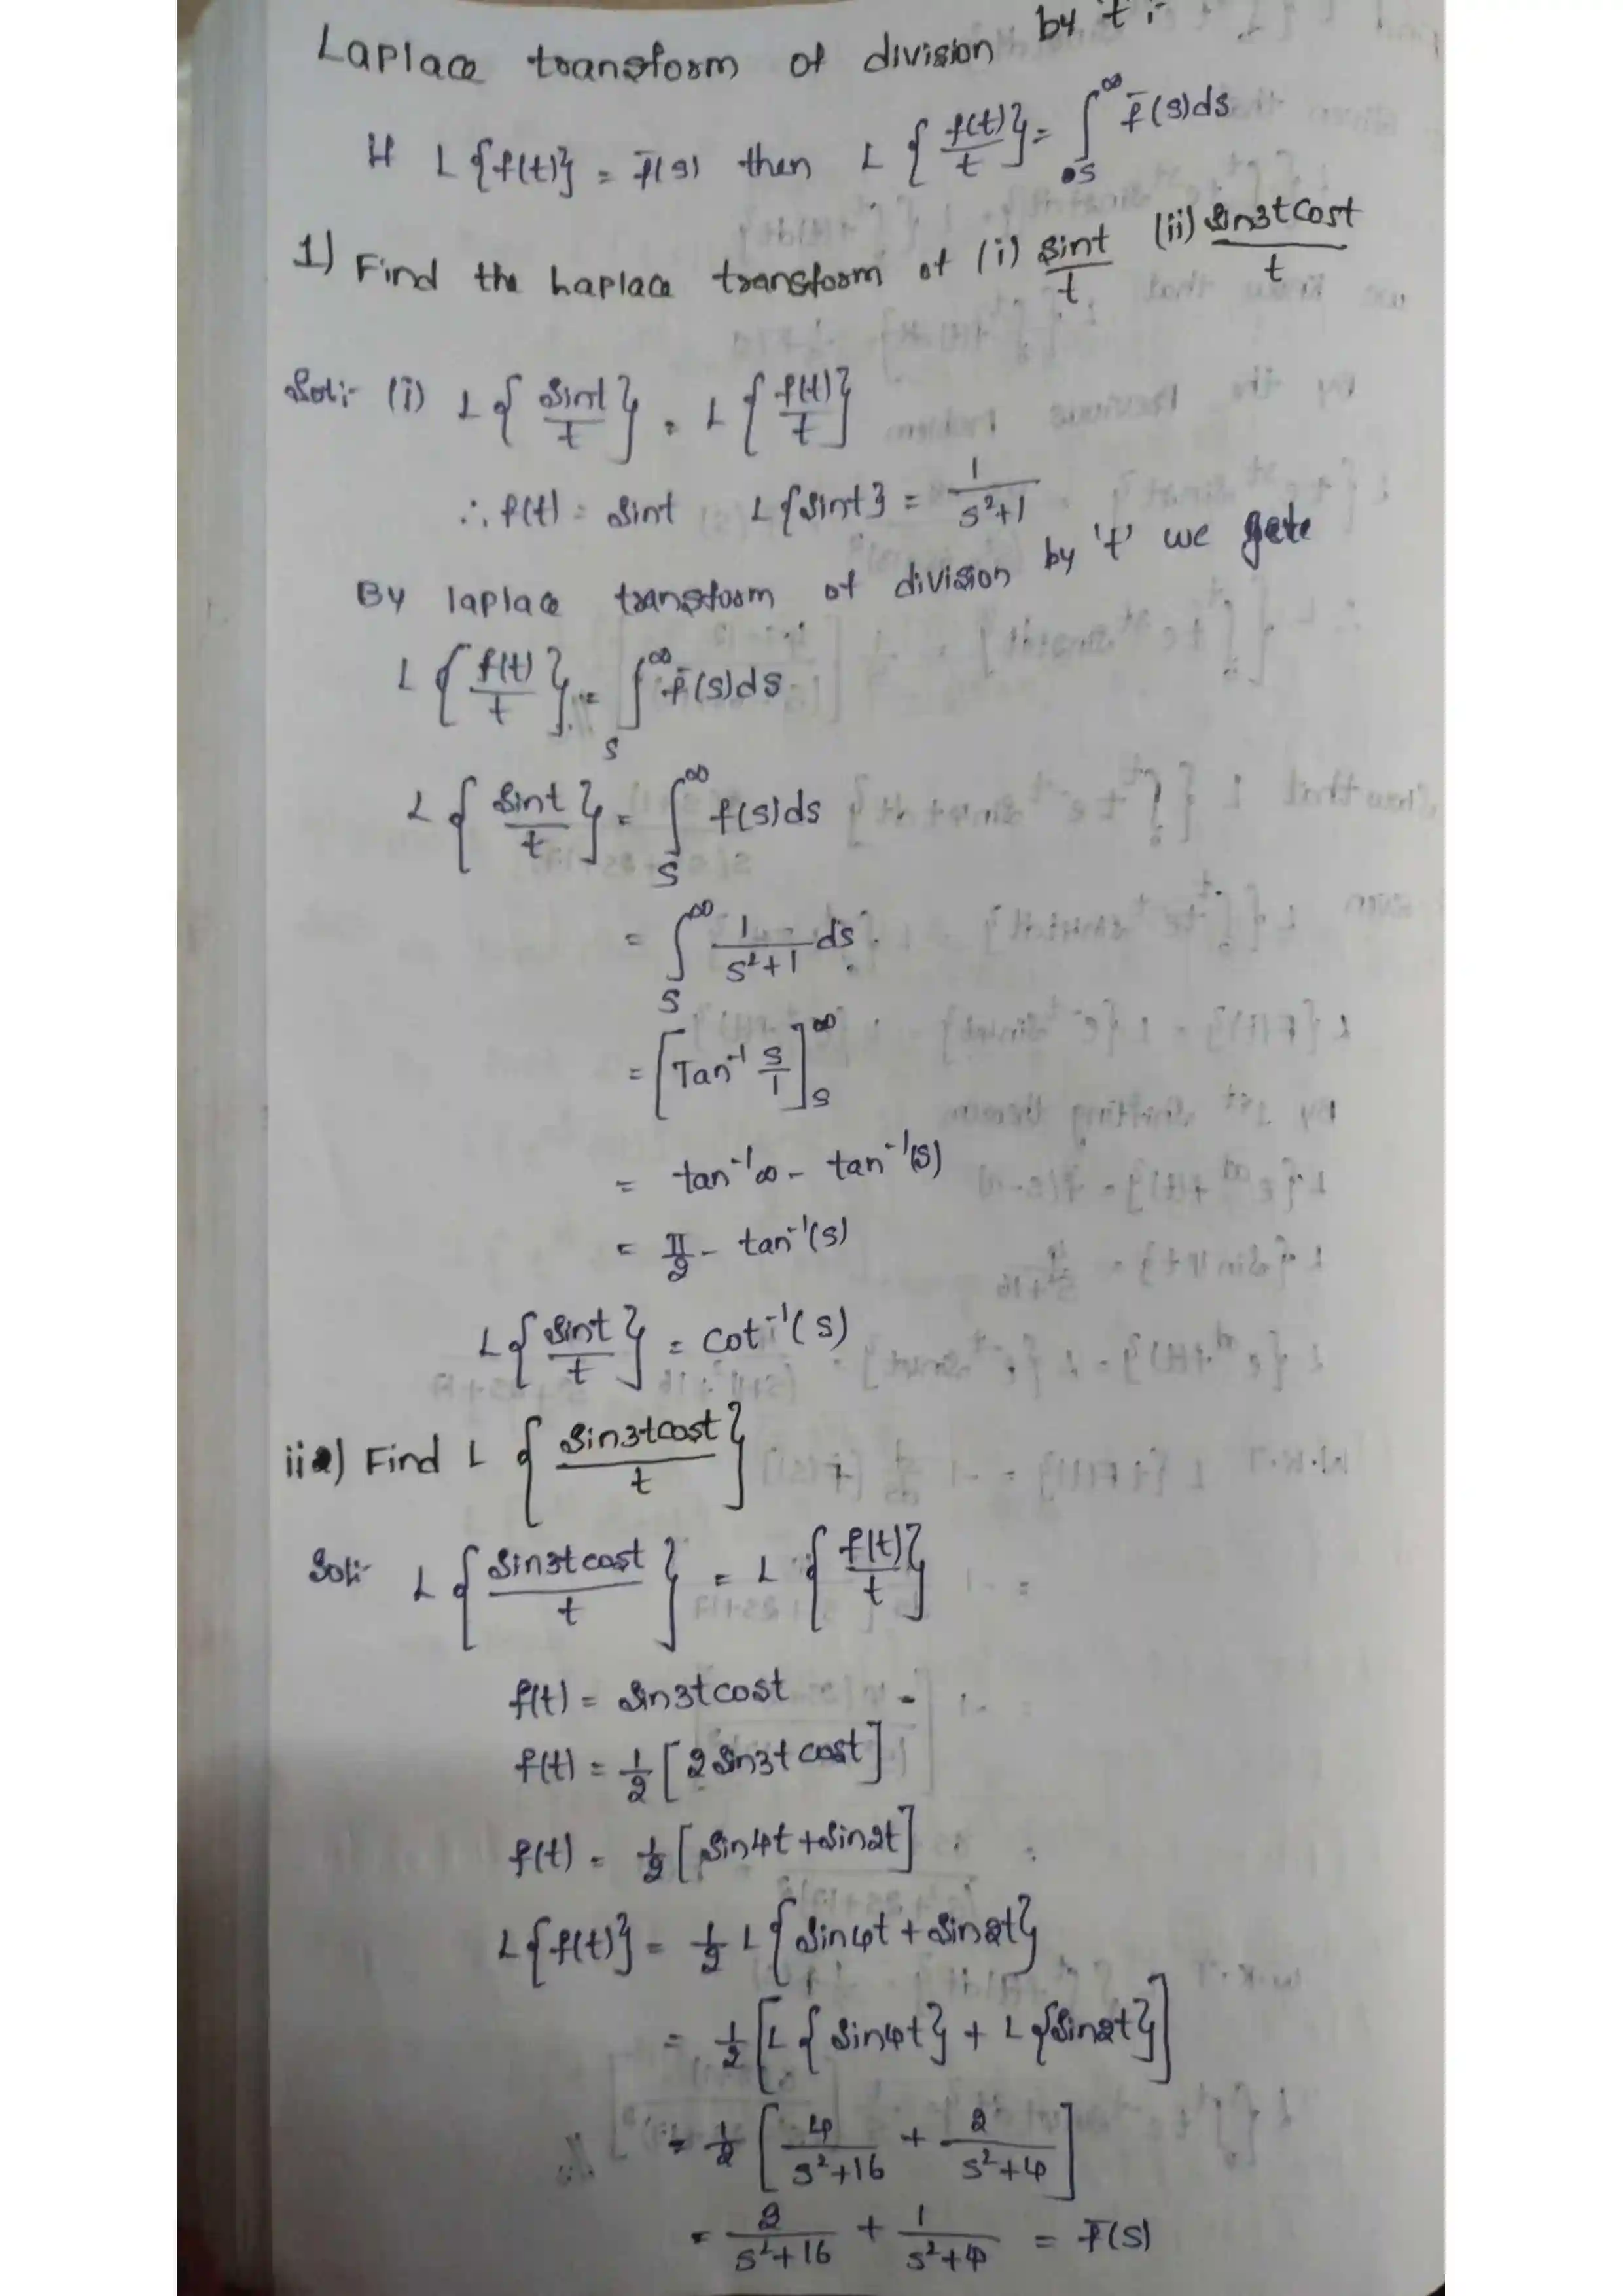 Laplace transform of division by 't' :-
If L{f(t)} = f̄(s) then L{f(t)/t} = ∫_s^∞ f̄(s)ds
1) Find the Laplace transform of (i) sint/t (ii) sin3tcost/t
Sol:- (i) L{sint/t} = L{f(t)/t}
∴ f(t) = sint L{sint} = 1/(s²+1)
By laplace transform of division by 't' we get
L{f(t)/t} = ∫_s^∞ f̄(s)ds
L{sint/t} = ∫_s^∞ f(s)ds
= ∫_s^∞ 1/(s²+1) ds
= [Tan⁻¹ s/1]_s^∞
= tan⁻¹∞ - tan⁻¹(s)
= π/2 - tan⁻¹(s)
L{sint/t} = cot⁻¹(s)
ii) Find L{sin3tcost/t}
Sol:- L{sin3tcost/t} = L{f(t)/t}
f(t) = sin3tcost
f(t) = 1/2 [2sin3t cost]
f(t) = 1/2 [sin4t + sin2t]
L{f(t)} = 1/2 L{sin4t + sin2t}
= 1/2 [L{sin4t} + L{sin2t}]
= 1/2 [4/(s²+16) + 2/(s²+4)]
= 2/(s²+16) + 1/(s²+4) = f̄(s)